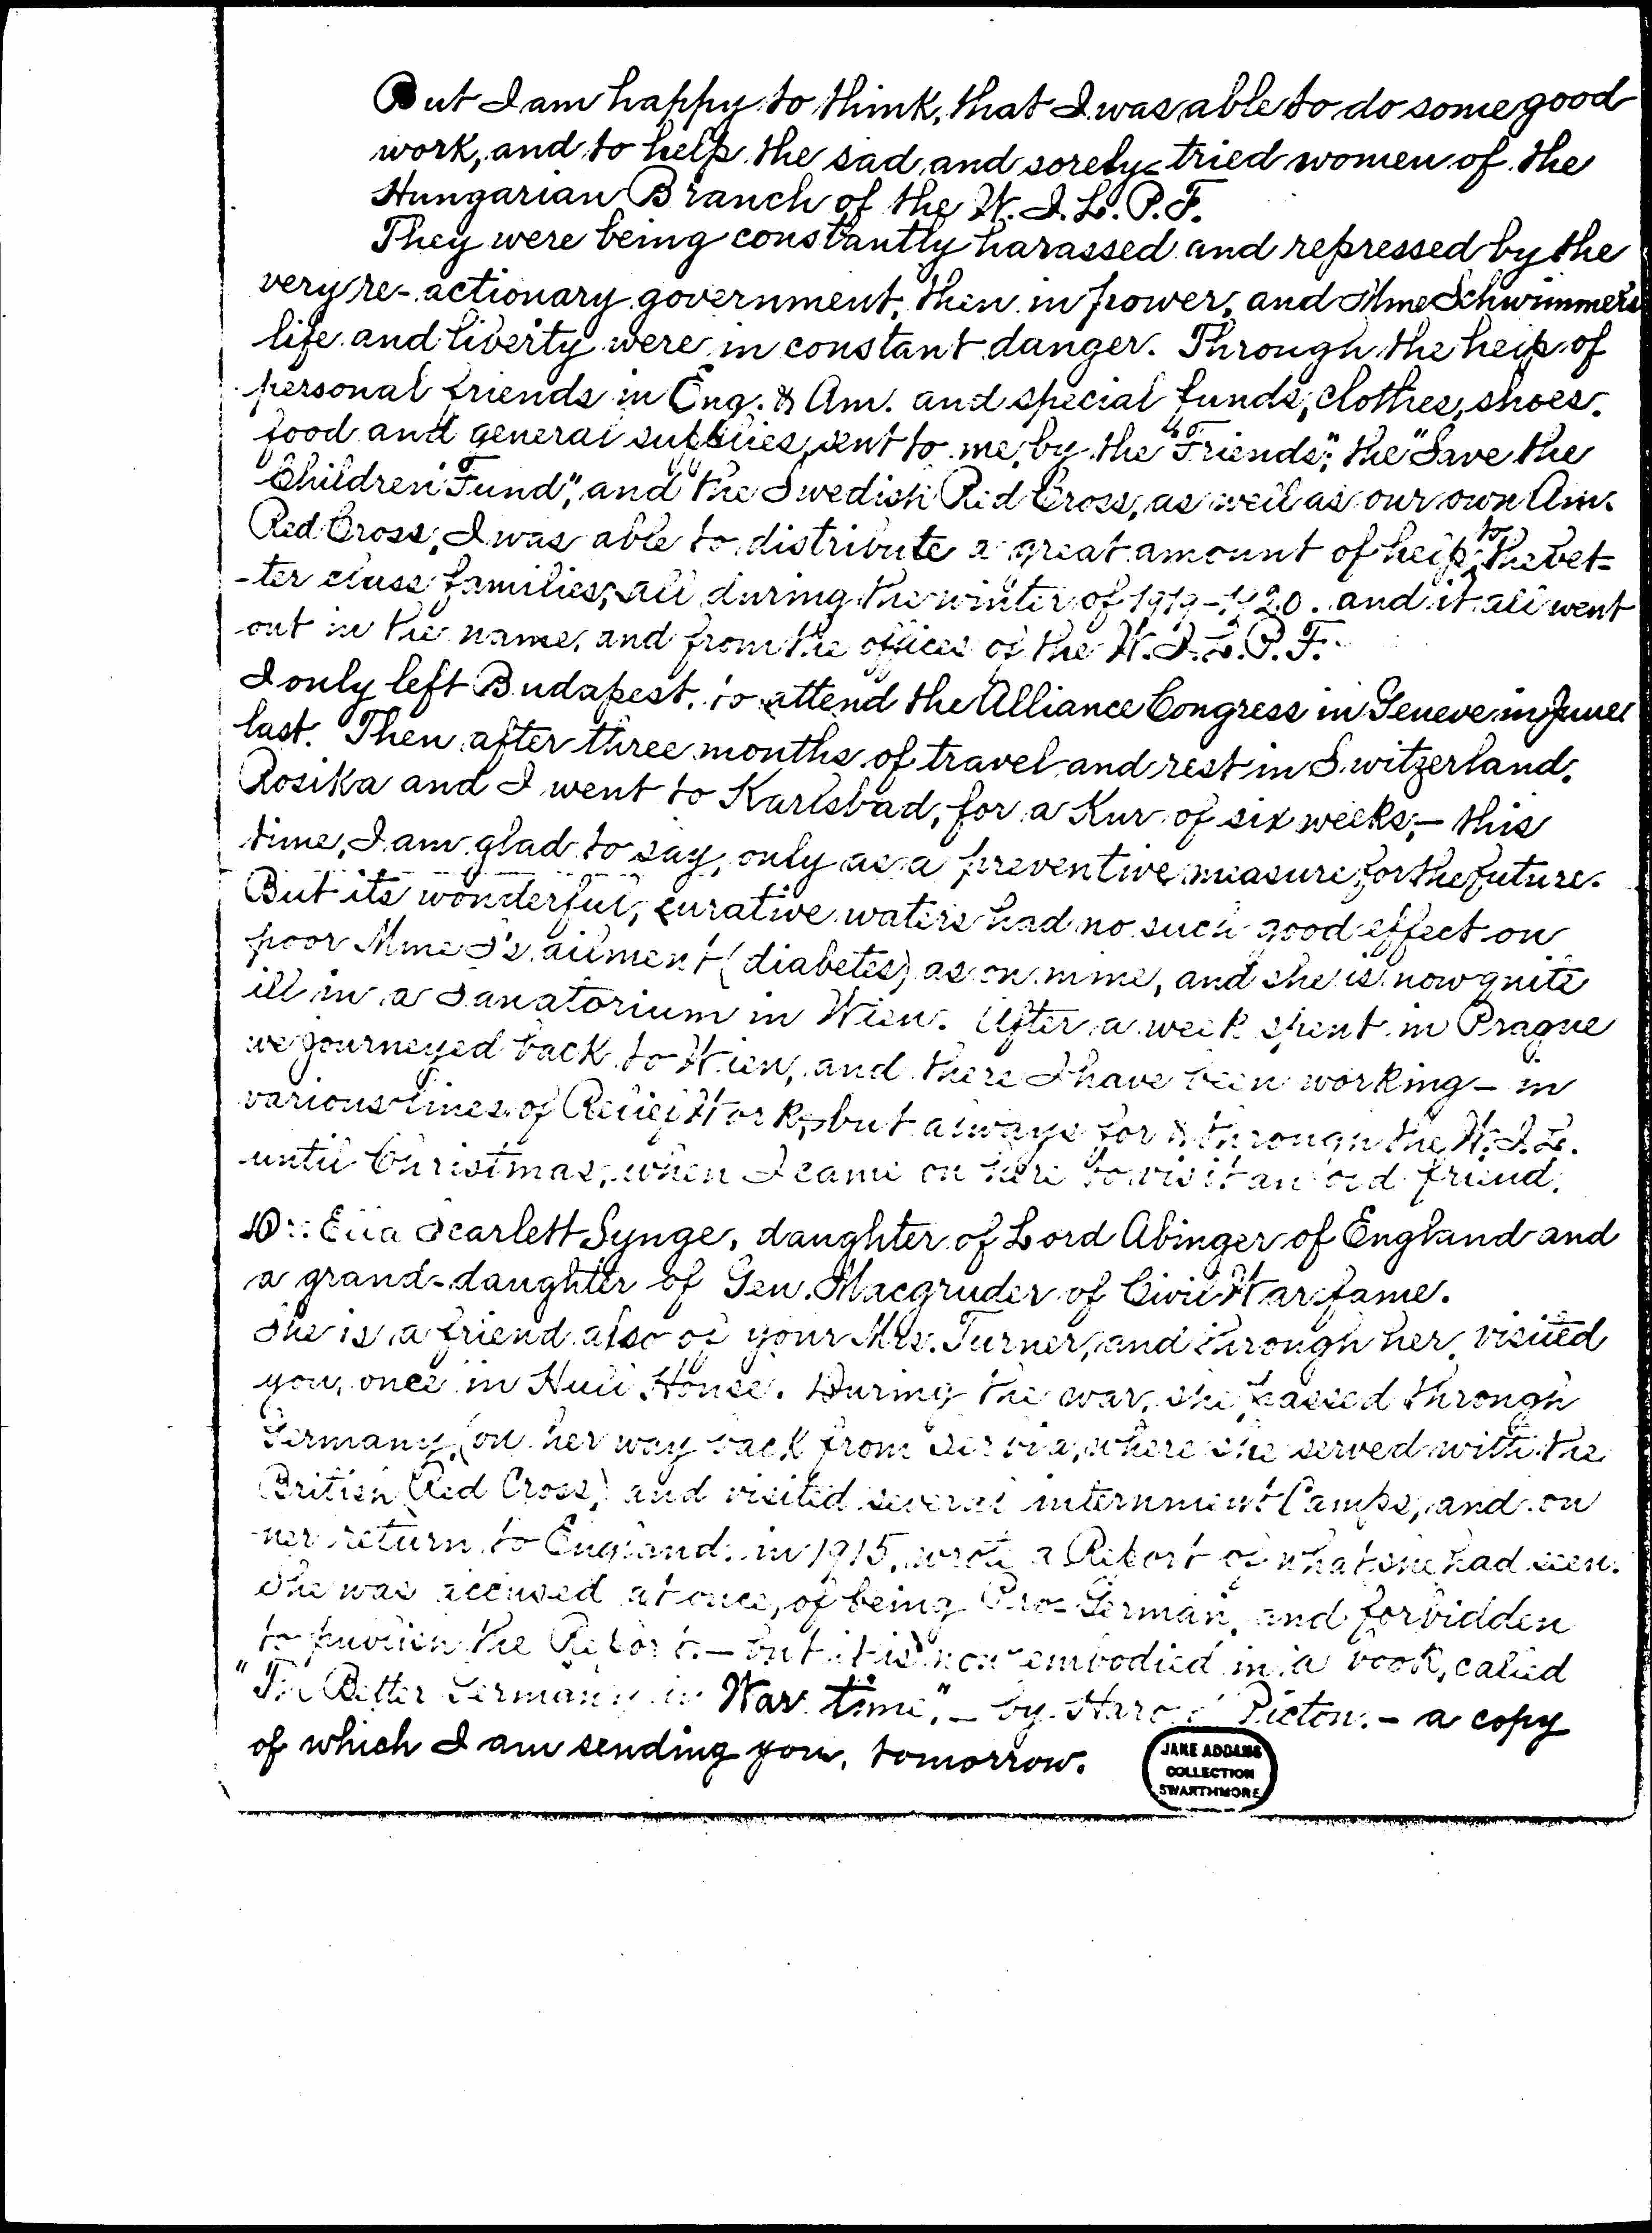 But I am happy to think, that I was able to do some good
work, and to help the sad and sorely-tried women of the
Hungarian Branch of the W. I. L. P. F.
They were being constantly harassed and repressed by the
very re-actionary government, then in power, and Mme Schwimmer's
life and liberty were in constant danger. Through the help of
personal friends in Eng. & Am. and special funds, clothes, shoes,
food and general supplies, sent to me, by the "Friends", the "Save the
Children Fund", and the Swedish Red Cross, as well as our own Am.
Red Cross, I was able to distribute a great amount of help, to the bet-
-ter class families, all during the winter of 1919-1920. and it all went
out in the name, and from the offices of the W. I. L. P. F.
I only left Budapest, to attend the Alliance Congress in Geneve in June
last. Then after three months of travel and rest in Switzerland,
Rosika and I went to Karlsbad, for a Kur of six weeks, - this
time, I am glad to say, only as a preventive measure, for the future.
But its wonderful, curative waters had no such good effect on
poor Mme S's ailment (diabetes) as on mine, and she is now quite
ill in a Sanatorium in Wien. After a week spent in Prague
we journeyed back to Wien, and there I have been working - in
various lines of Relief Work, but always for & through the W. I. L.
until Christmas, when I came on here to visit an old friend,
Dr. Ella Scarlett Synge, daughter of Lord Abinger of England and
a grand-daughter of Gen. Macgruder of Civil War fame.
She is a friend also of your Mrs. Turner, and through her, visited
you, once in Hull House. During the war, she passed through
Germany, (on her way back from Servia, where she served with the
British Red Cross) and visited several internment Camps, and on
her return to England, in 1915, wrote a Report of what she had seen.
She was accused at once, of being Pro-German, and forbidden
to publish the Report, - but it is now embodied in a book, called
"The Better Germany in War time", - by Harold Picton. - a copy
of which I am sending you, tomorrow.
JANE ADDAMS
COLLECTION
SWARTHMORE